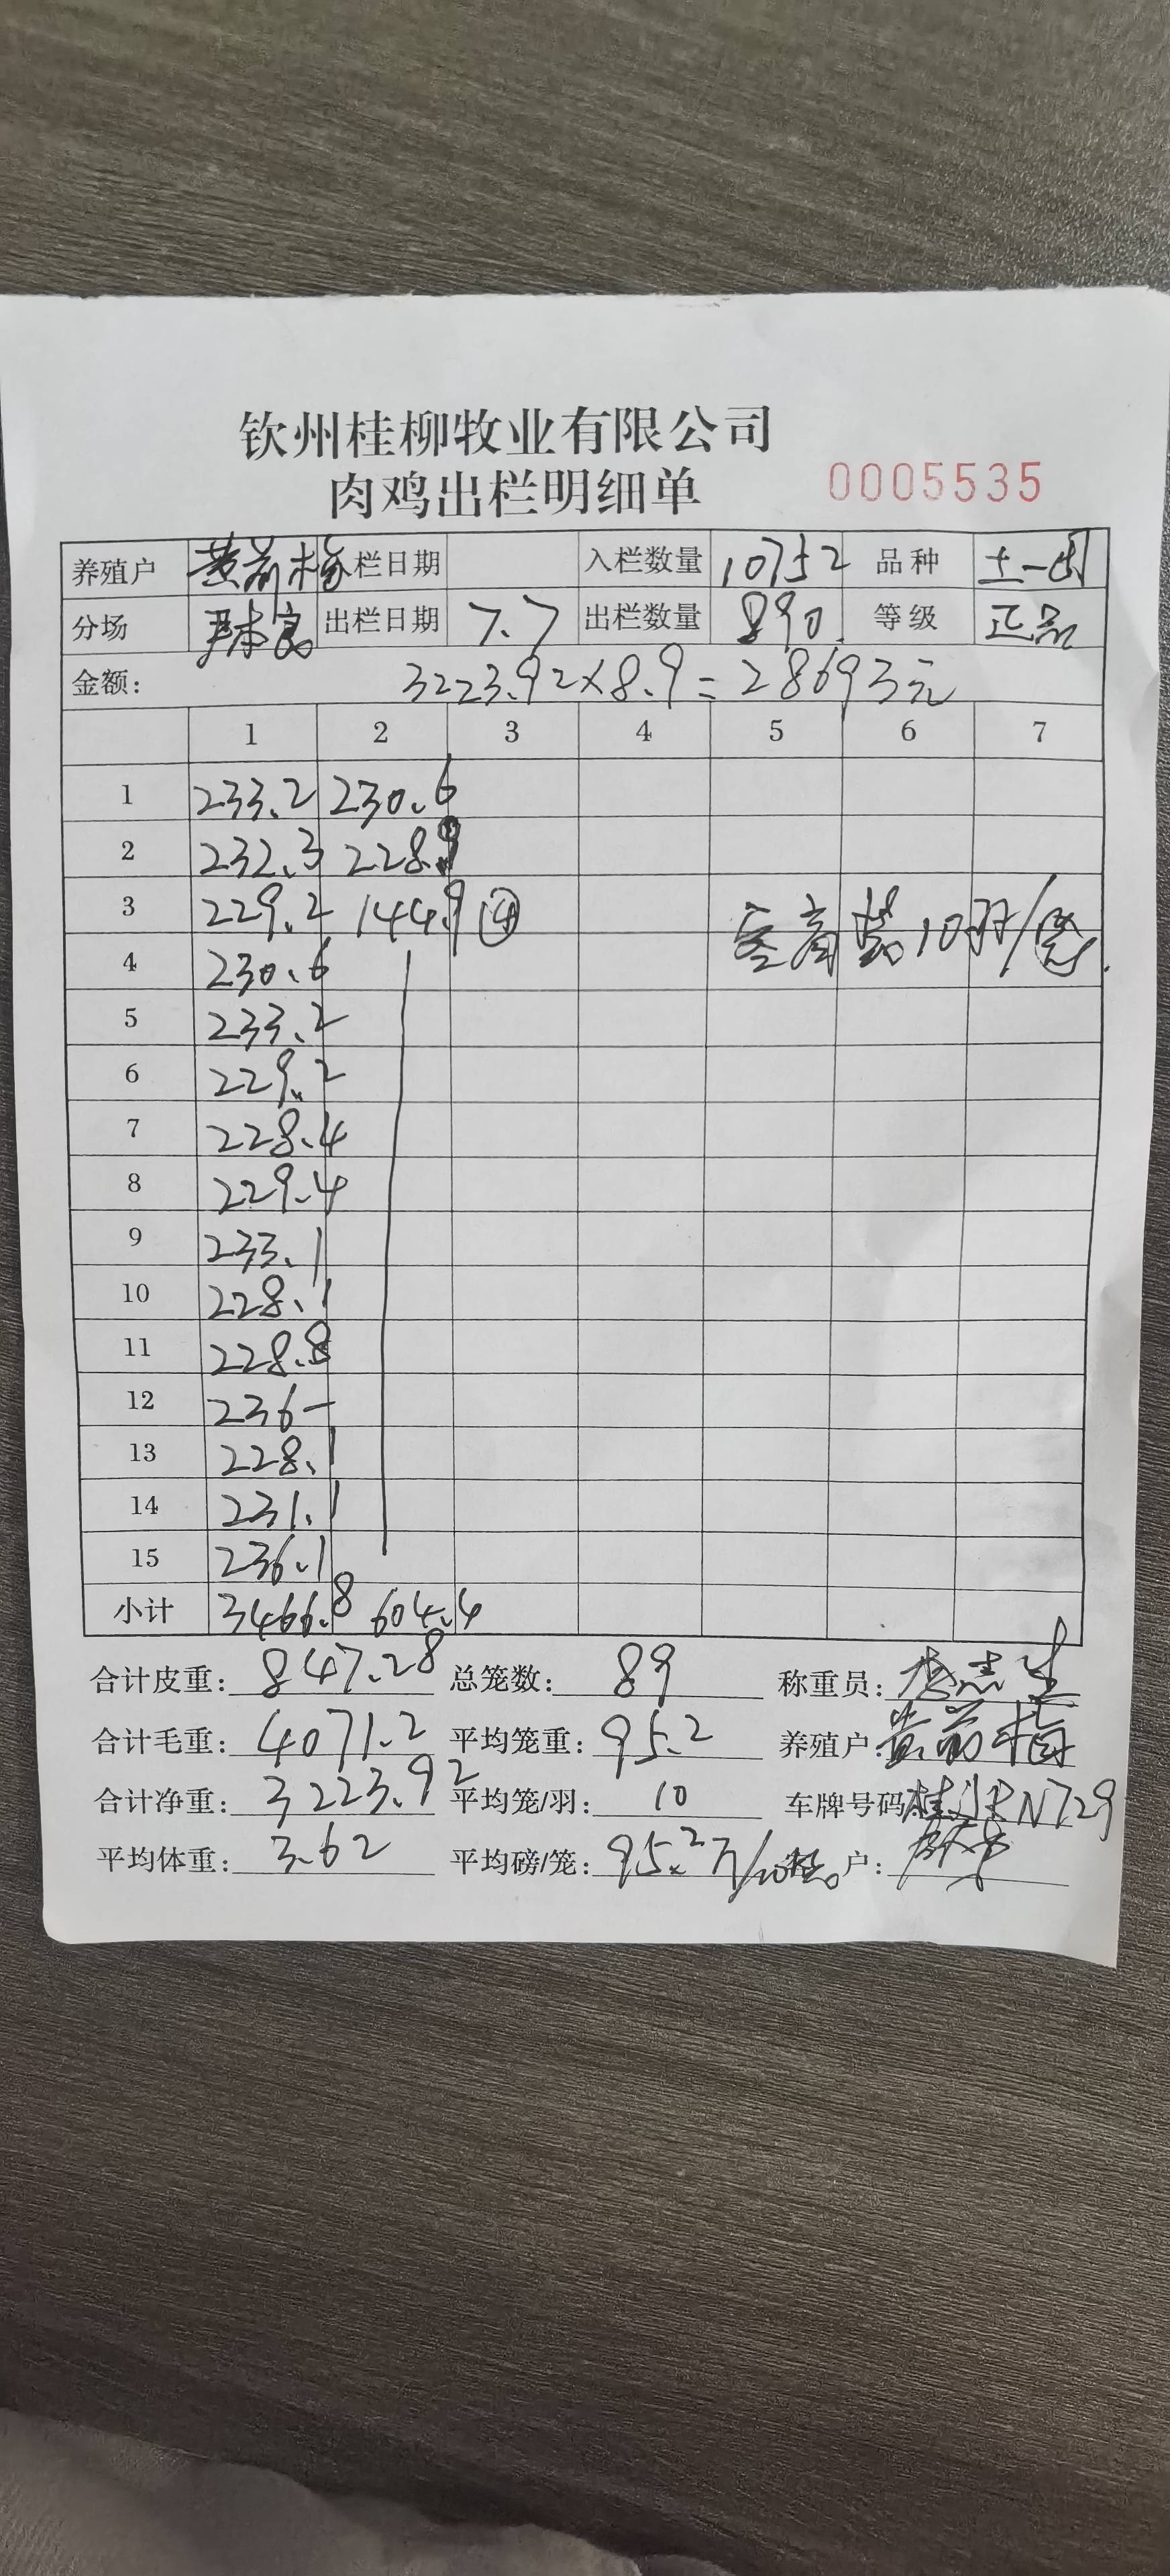 钦州桂柳牧业有限公司
肉鸡出栏明细单 0005535
养殖户 黄 梅 栏日期 入栏数量 10752 品种 土一
分场 出栏日期 7.7 出栏数量 890. 等级 正品
金额: 3223.92×8.9=28693元
1 2 3 4 5 6 7
1 233.2 230.6
2 232.3 228.9
3 229.2 144.9 ④ 客商装10羽/笼.
4 230.6
5 233.2
6 229.2
7 228.4
8 229.4
9 233.1
10 228.1
11 228.8
12 236-
13 228.1
14 231.1
15 236.1
小计 3466.8 604.4
合计皮重: 847.28 总笼数: 89 称重员:
合计毛重: 4071.2 平均笼重: 95.2 养殖户:
合计净重: 3223.92 平均笼/羽: 10 车牌号码: 桂 RN729
平均体重: 3.62 平均磅/笼: 95.2斤/ 户: